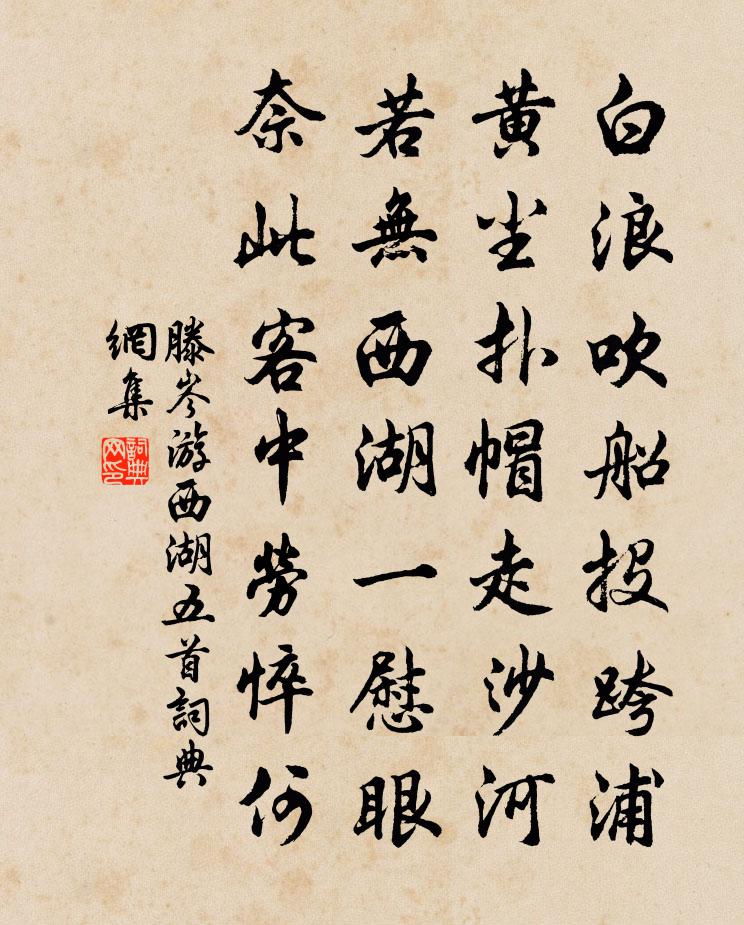 白浪吹船投跨浦
黄尘扑帽走沙河
若無西湖一慰眼
奈此客中勞悴何
滕岑游西湖五首詞典
網集
詞典网印